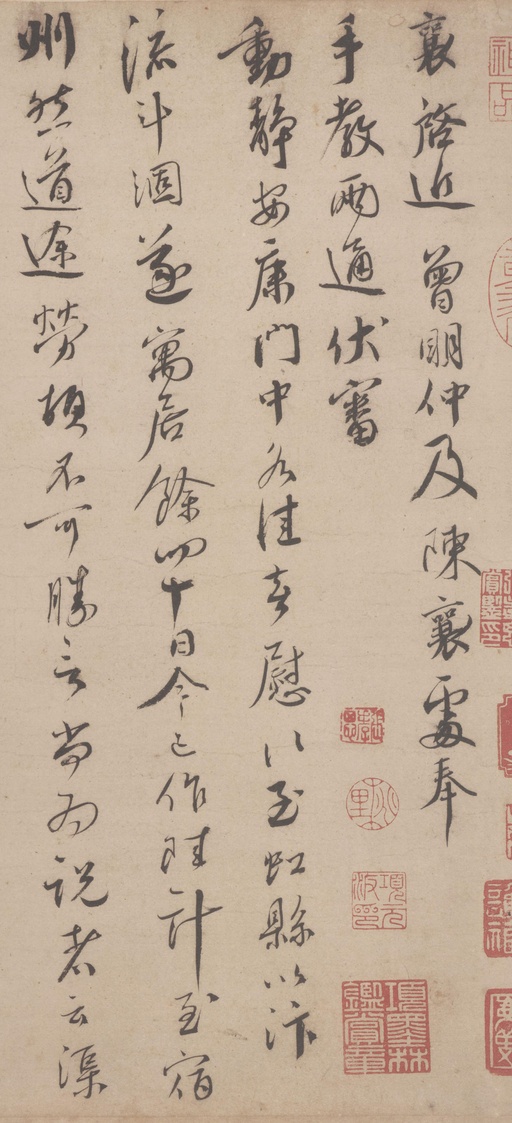 襄啓近 曾明仲及 陳襄處奉
手教兩通伏審
動靜安康門中各佳喜慰以至虹縣以汴
流斗涸遂寓居餘四十日今已作陸計至宿
州然道途勞頓不可勝言尚為說者云渠
神品
項元汴印
項墨林鑑賞章